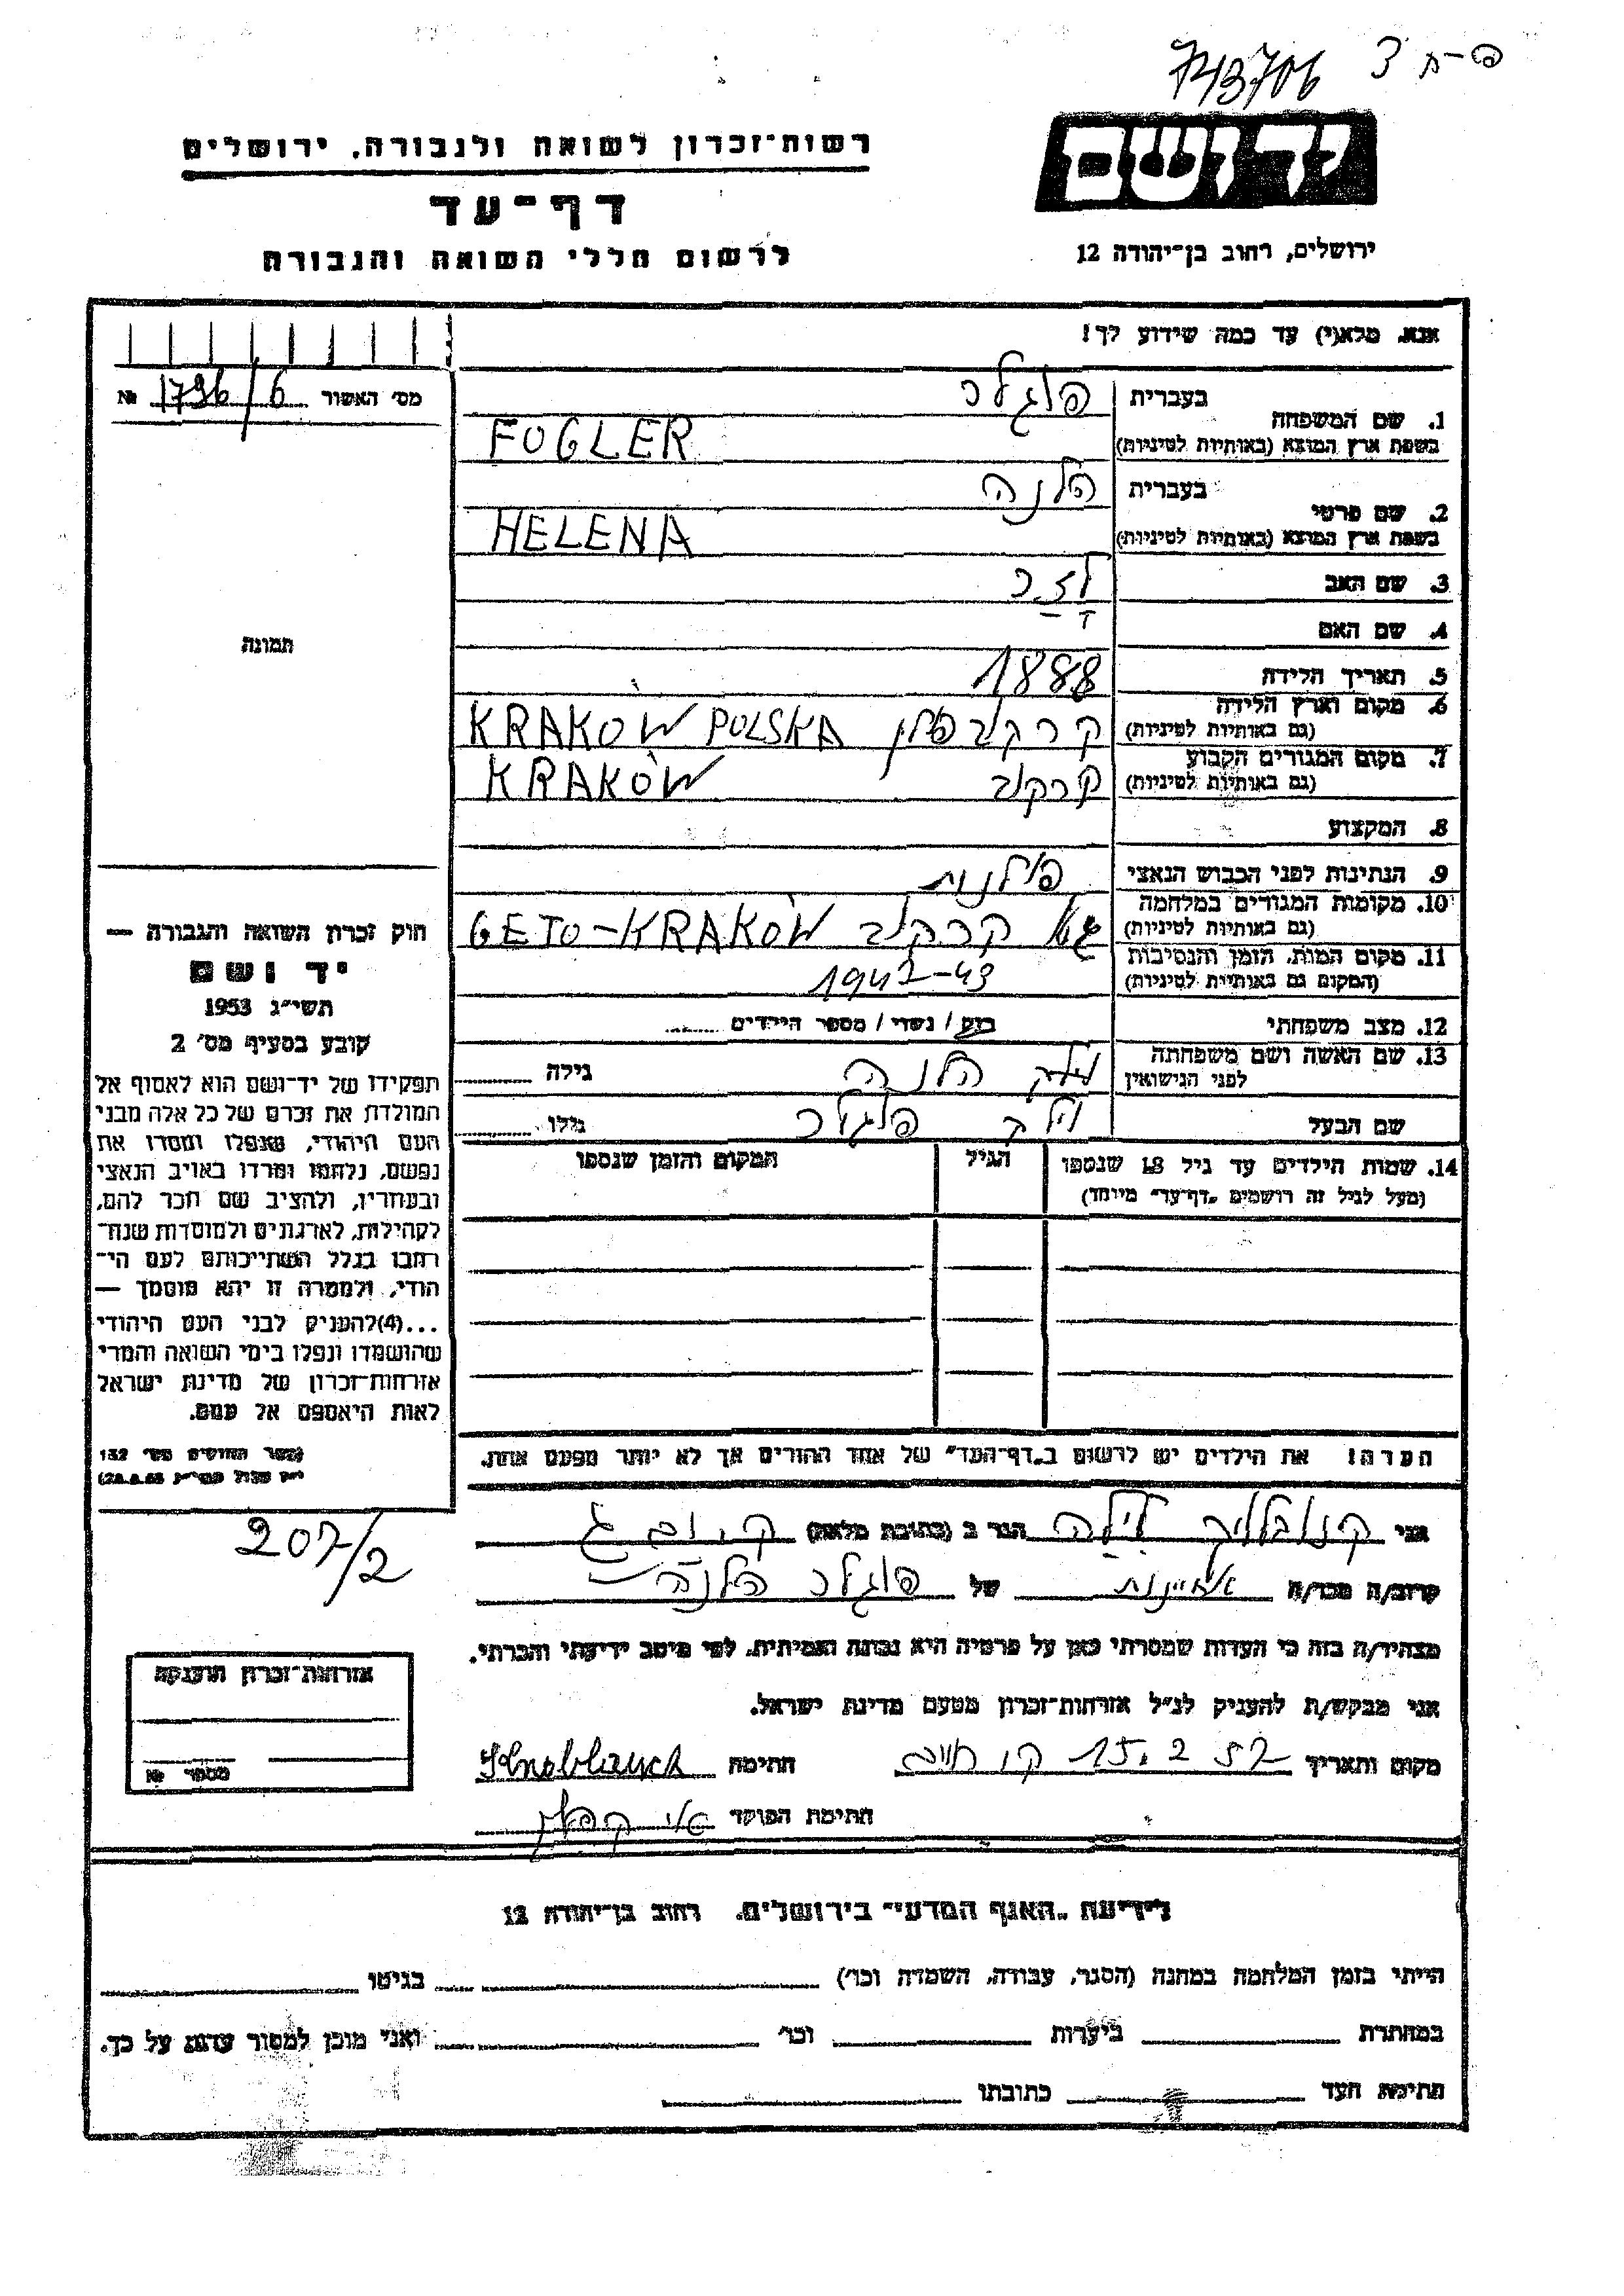 743706
יד ושם
רשות־זכרון לשואה ולגבורה, ירושלים
דף־עד
לרשום חללי השואה והגבורה
ירושלים, רחוב בן־יהודה 12
אנא, מלא(י) עד כמה שידוע לך!
מס׳ האשור 1796/6 №
1. שם המשפחה
בעברית פוגלר
בשפת ארץ המוצא (באותיות לטיניות) FOGLER
2. שם פרטי
בעברית הלנה
בשפת ארץ המוצא (באותיות לטיניות) HELENA
3. שם האב
4. שם האם
5. תאריך הלידה 1888
6. מקום וארץ הלידה
(גם באותיות לטיניות) קרקוב פולין KRAKOW POLSKA
7. מקום המגורים הקבוע
(גם באותיות לטיניות) קרקוב KRAKÓW
8. המקצוע
9. הנתינות לפני הכבוש הנאצי פולנית
10. מקומות המגורים במלחמה
(גם באותיות לטיניות) גטו קרקוב GETO-KRAKÓW
11. מקום המות, הזמן והנסיבות
(המקום גם באותיות לטיניות) 1942-43
12. מצב משפחתי רווק / נשוי / מספר הילדים
13. שם האשה ושם משפחתה
לפני הנישואין הלנה גילה
שם הבעל פוגלר גילו
14. שמות הילדים עד גיל 18 שנספו
(מעל לגיל זה רושמים „דף־עד” מיוחד)
הגיל
המקום והזמן שנספו
הערה! את הילדים יש לרשום ב„דף־העד” של אחד ההורים אך לא יותר מפעם אחת.
תמונה
חוק זכרון השואה והגבורה —
יד ושם
תשי״ג 1953
קובע בסעיף מס׳ 2
תפקידו של יד־ושם הוא לאסוף אל
המולדת את זכרם של כל אלה מבני
העם היהודי, שנפלו ומסרו את
נפשם, נלחמו ומרדו באויב הנאצי
ובעוזריו, ולהציב שם וזכר להם,
לקהילות, לארגונים ולמוסדות שנח־
רבו בגלל השתייכותם לעם הי־
הודי, ולמטרה זו יהא מוסמך —
...(4)להעניק לבני העם היהודי
שהושמדו ונפלו בימי השואה והמרי
אזרחות־זכרון של מדינת ישראל
לאות היאספם אל עמם.
(ספר החוקים מס׳ 132
207/2
אני הגר ב (כתובת מלאה)
קרוב/ה מכר/ה של פוגלר הלנה
מצהיר/ה בזה כי העדות שמסרתי כאן על פרטיה היא נכונה ואמיתית, לפי מיטב ידיעתי והכרתי.
אני מבקש/ת להעניק לנ״ל אזרחות־זכרון מטעם מדינת ישראל.
מקום ותאריך 15.2.57 חתימה Knoblauch
חתימת הפוקד
אזרחות־זכרון הוענקה
מספר №
לידיעת „האגף המדעי” בירושלים, רחוב בן־יהודה 12
הייתי בזמן המלחמה במחנה (הסגר, עבודה, השמדה וכו׳) בגיטו
במחתרת ביערות וכו׳ ואני מוכן למסור עדות על כך.
חתימת העד כתובתו